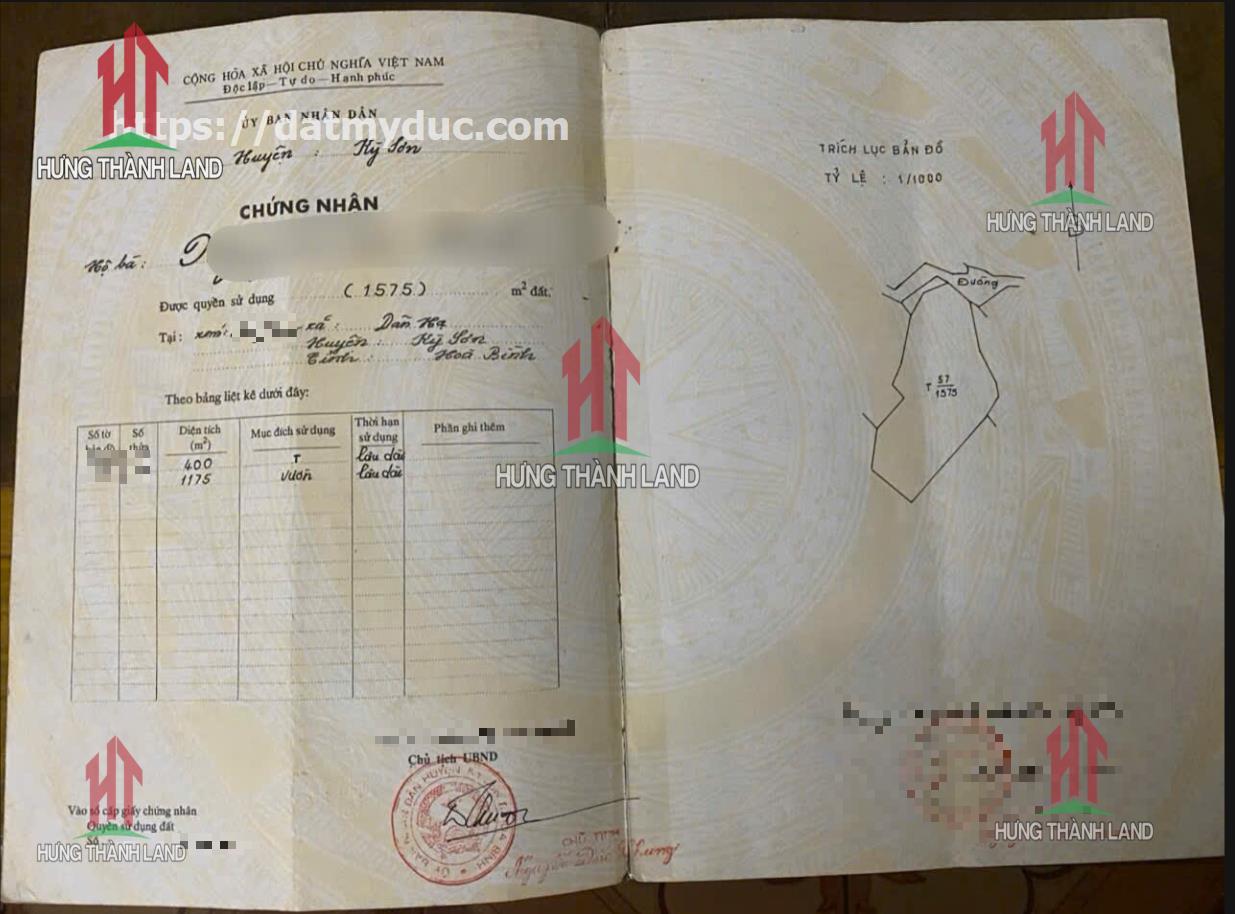 CỘNG HÒA XÃ HỘI CHỦ NGHĨA VIỆT NAM
Độc lập — Tự do — Hạnh phúc
ỦY BAN NHÂN DÂN
https://datmyduc.com
Huyện : Kỳ Sơn
HƯNG THÀNH LAND
CHỨNG NHẬN
Hộ bà :
Được quyền sử dụng (1575) m² đất.
Tại : xóm: xã : Dân Hạ
Huyện : Kỳ Sơn
Tỉnh : Hoà Bình
Theo bảng liệt kê dưới đây:
Số tờ Số Diện tích Mục đích sử dụng Thời hạn Phần ghi thêm
thửa (m²) sử dụng
400 T Lâu dài
1175 vườn Lâu dài
HƯNG THÀNH LAND
Chủ tịch UBND
Vào sổ cấp giấy chứng nhận
Quyền sử dụng đất
Số
HƯNG THÀNH LAND
CHỦ TỊCH
TRÍCH LỤC BẢN ĐỒ
TỶ LỆ : 1/1000
HƯNG THÀNH LAND
B
Đường
T 57
1575
HƯNG THÀNH LAND